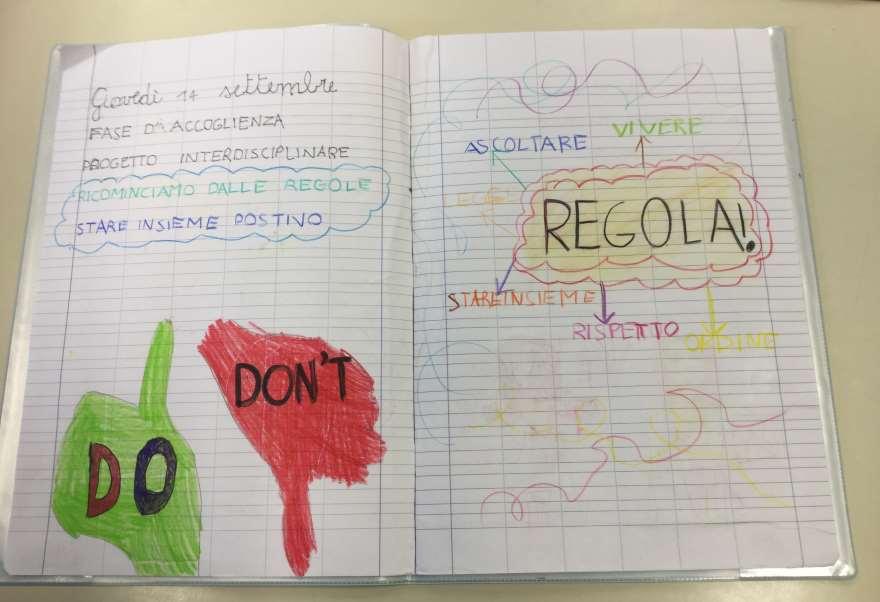 Giovedì 14 settembre
FASE D'ACCOGLIENZA
PROGETTO INTERDISCIPLINARE
RICOMINCIAMO DALLE REGOLE
STARE INSIEME POSTIVO
DO
DON'T
ASCOLTARE
VIVERE
REGOLA!
STARE INSIEME
RISPETTO
ORDINE